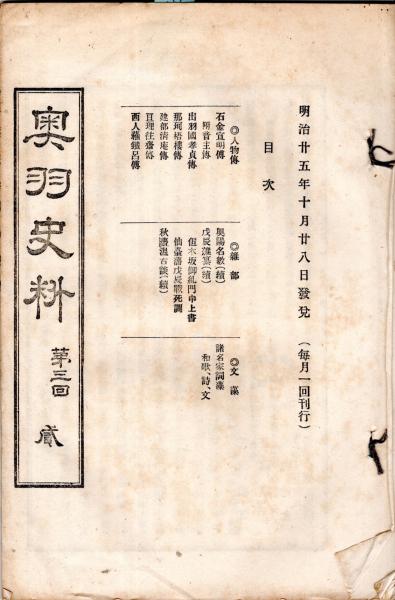 明治廿五年十月廿八日發兌
(每月一回刊行)
目次
◎人物傳
石金宣明傳
照音主傳
出羽國孝貞傳
那珂梧樓傳
建部淸庵傳
亘理往齋傳
西人羅鐵呂傳
◎雜部
奧陽名數(續)
戊辰漫纂(續)
佃木坂御亂鬥申上書
仙臺藩戊辰戰死調
秋濟溫古談(續)
◎文藻
諸名家詞藻
和歌、詩、文
奥羽史料
第三回
貳